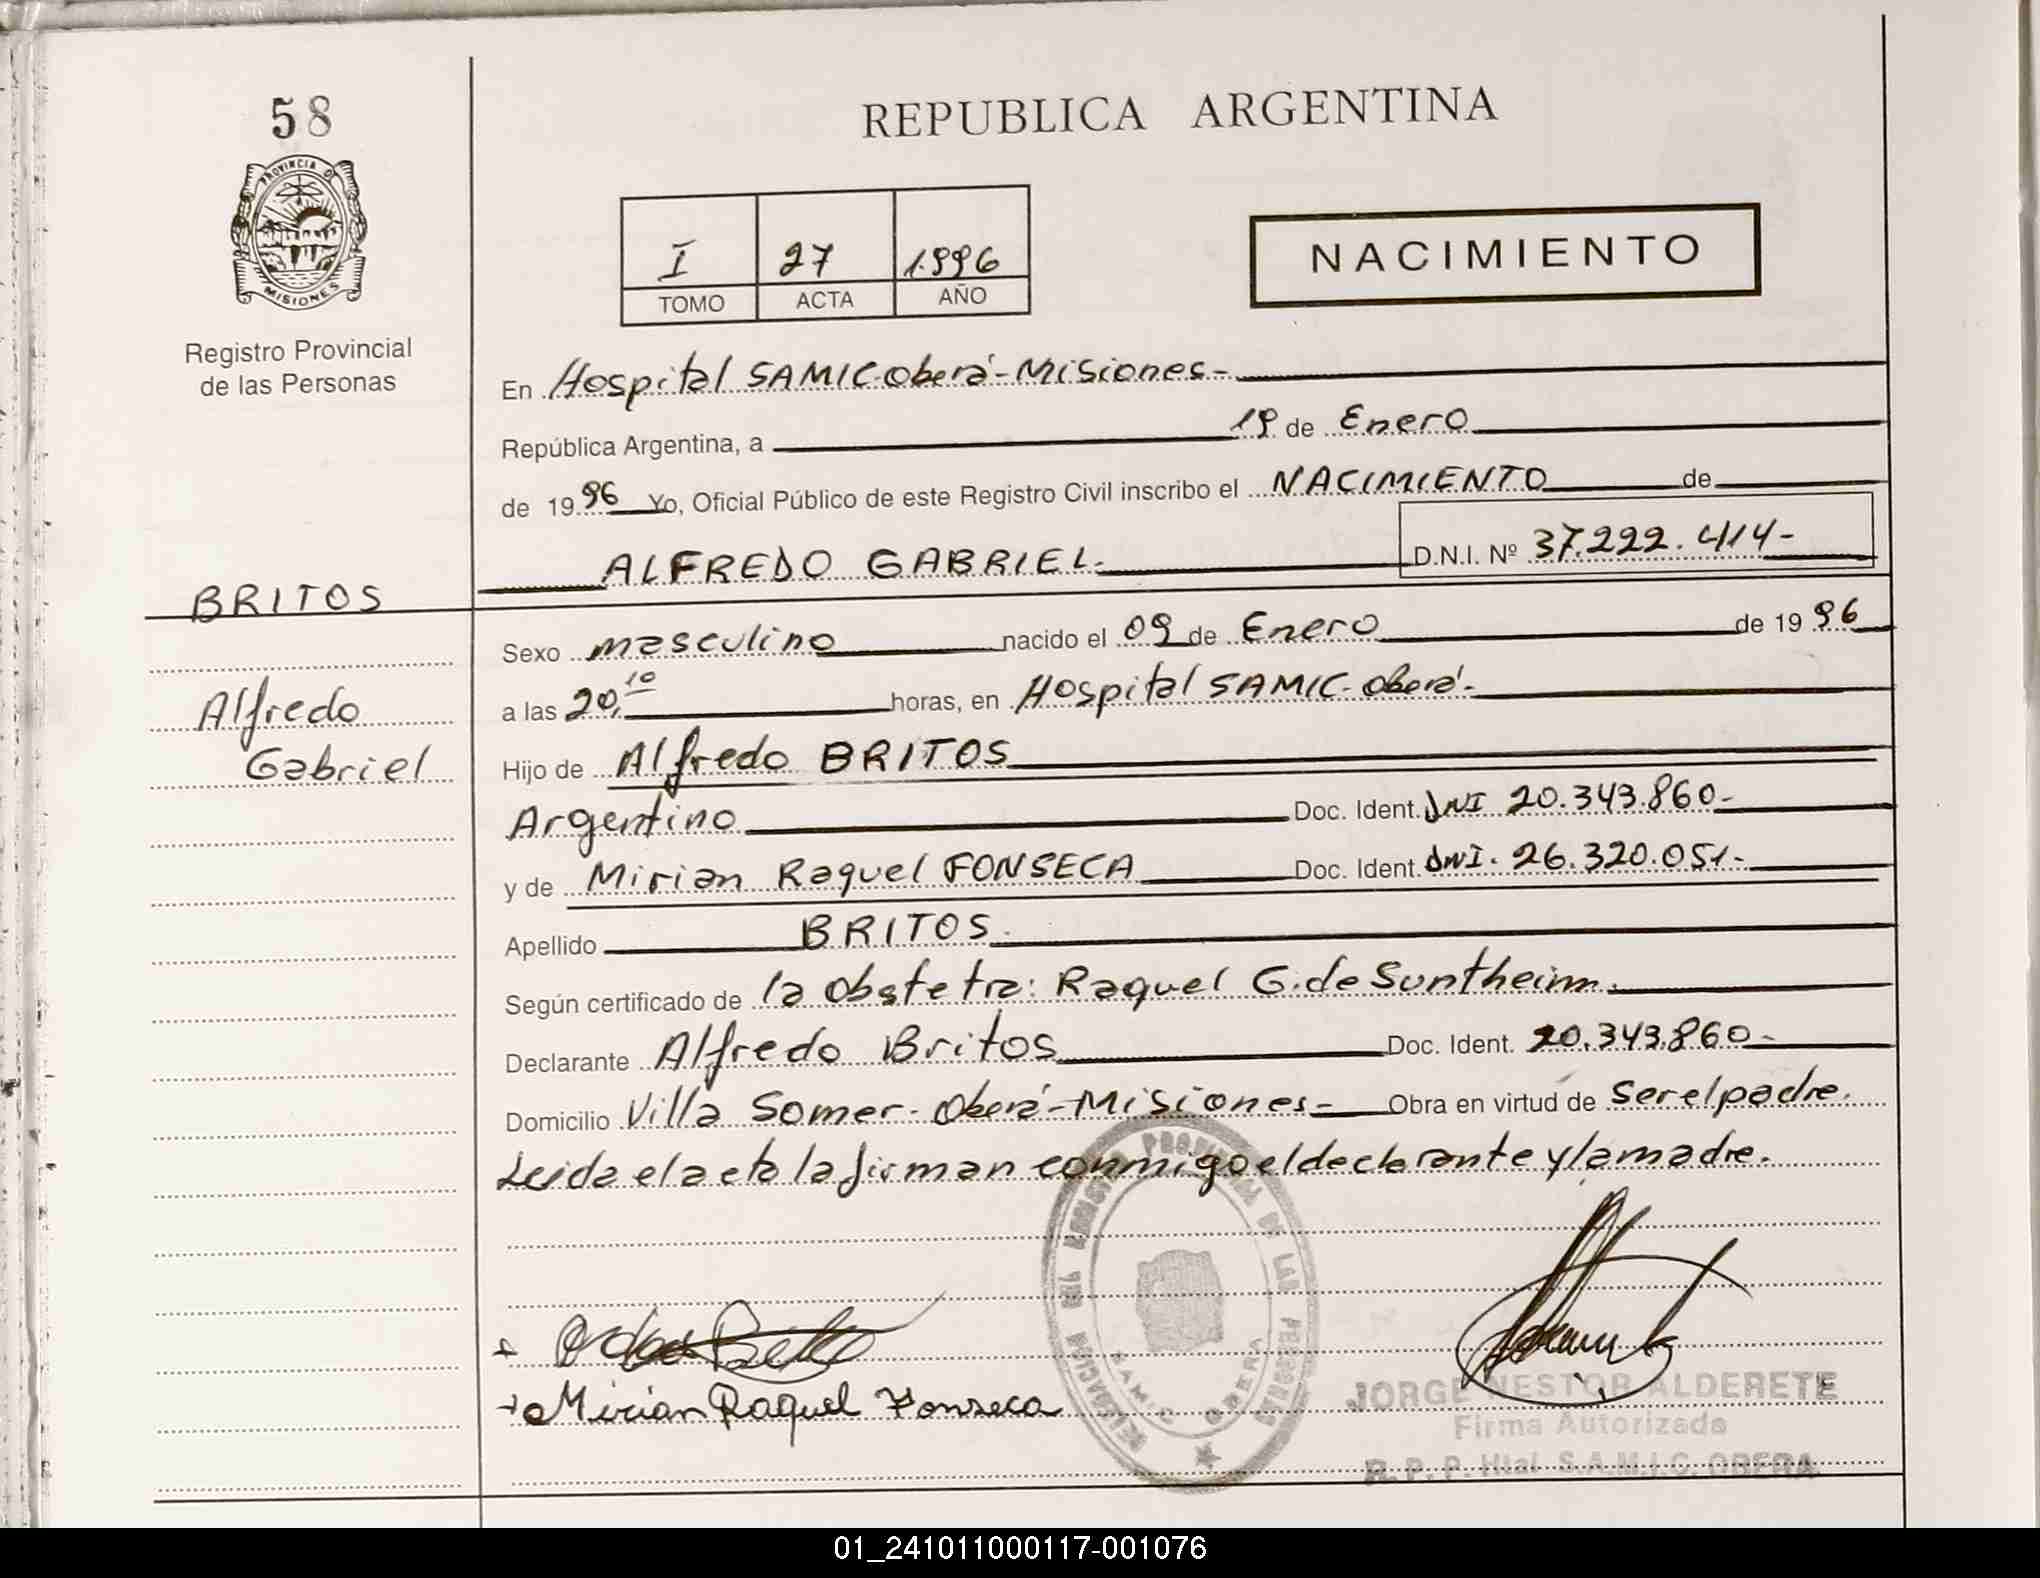 58
PROVINCIA D
MISIONES
Registro Provincial
de las Personas
BRITOS
Alfredo
Gabriel
REPUBLICA ARGENTINA
I 27 1.996
TOMO ACTA AÑO
NACIMIENTO
En Hospital SAMIC-Oberá-Misiones-
República Argentina, a 19 de Enero
de 19 96 Yo, Oficial Público de este Registro Civil inscribo el NACIMIENTO de
ALFREDO GABRIEL- D.N.I. Nº 37.222.414-
Sexo masculino nacido el 09 de Enero de 19 96
a las 20,10 horas, en Hospital SAMIC-Oberá-
Hijo de Alfredo BRITOS
Argentino Doc. Ident. DNI 20.343.860-
y de Mirian Raquel FONSECA Doc. Ident. DNI. 26.320.051-
Apellido BRITOS.
Según certificado de la Obstetra: Raquel G. de Suntheim.
Declarante Alfredo Britos Doc. Ident. 20.343.860-
Domicilio Villa Somer- Oberá-Misiones- Obra en virtud de ser el padre.
Leida el acta la firman conmigo el declarante y la madre.
DELEGACION DEL REGISTRO PROVINCIAL DE LAS PERSONAS
SAMIC OBERA
Mirian Raquel Fonseca
JORGE NESTOR ALDERETE
Firma Autorizada
R. P. P. Htal S.A.M.I.C. OBERA
01_241011000117-001076